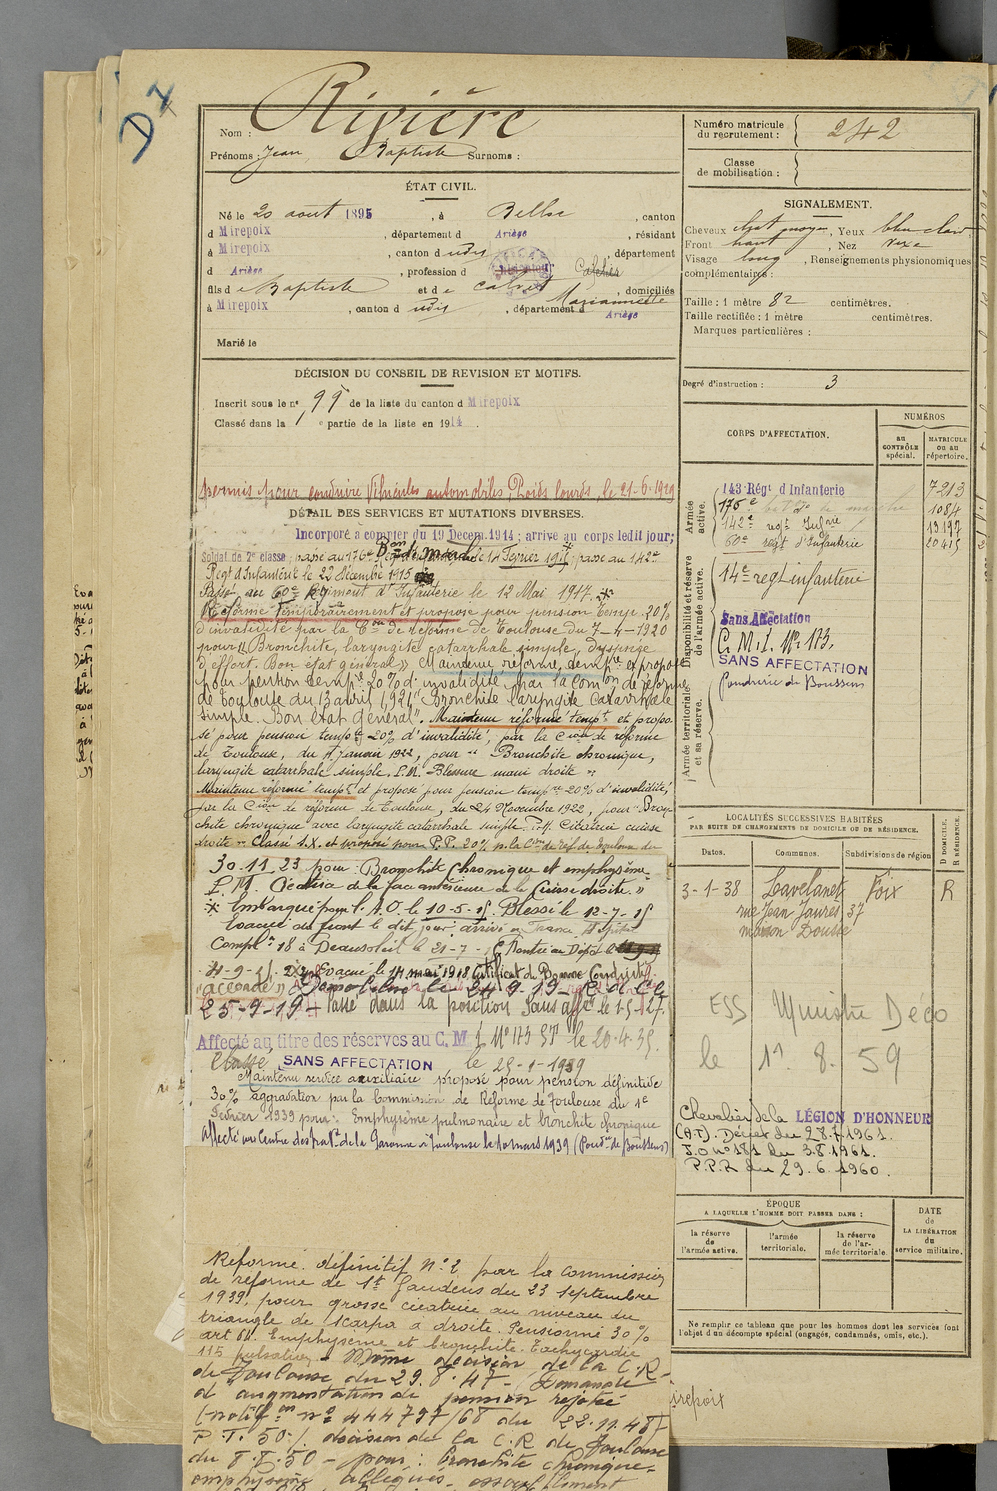 D 7
Nom : Rivière
Prénoms : Jean Baptiste Surnoms :
ÉTAT CIVIL.
Né le 20 août 1895, à Belloc, canton
d Mirepoix, département d Ariège, résidant
à Mirepoix, canton d udis, département
d Ariège, profession d
fils d e Baptiste et de Calvet Mariannette, domiciliés
à Mirepoix, canton d udis, département d Ariège
Marié le
DÉCISION DU CONSEIL DE REVISION ET MOTIFS.
Inscrit sous le n° 99 de la liste du canton d Mirepoix
Classé dans la 1e partie de la liste en 1914.
permis pour conduire Véhicules automobiles, Poids lourds, le 21-6-1929
DÉTAIL DES SERVICES ET MUTATIONS DIVERSES.
Incorporé à compter du 19 Décem. 1914 ; arrive au corps ledit jour ;
Soldat de 2e classe, passé au 176e Bon de marche le 14 Février 1915 * passé au 142e
Regt d'Infanterie le 22 décembre 1915
Passé au 60e Régiment d'Infanterie le 12 Mai 1917.
Réformé temporairement et proposé pour pension temp. 20%
d'invalidité par la Con de réforme de Toulouse du 7-4-1920
pour "Bronchite, laryngite catarrhale simple, dyspnée
d'effort. Bon état général" Maintenu réformé tempre et proposé
pour pension tempre 20% d'invalidité par la Comon de réforme
de Toulouse du 13 avril 1921 "Bronchite laryngite catarrhale
simple. Bon état général". Maintenu réformé tempt et propo-
sé pour pension tempre 20% d'invalidité, par la Cion de réforme
de Toulouse, du 11 janvier 1922, pour "Bronchite chronique,
laryngite catarrhale simple. P.M. Blessure main droite"
Maintenu réformé tempt et proposé pour pension tempre 20% d'invalidité,
par la Cion de réforme de Toulouse, du 24 Novembre 1922, pour "Bron-
chite chronique avec laryngite catarrhale simple. P.M. Cicatrice cuisse
droite". Classé S.X. et proposé pour P.P. 20% p. la Cion de réf. de Toulouse du
30.11.23 pour "Bronchite chronique et emphysème
P.M. Cicatrice de la face antérieure de la Cuisse droite"
* Embarqué pour l'A.O. le 10-5-15. Blessé le 12-7-15
Evacué du front le dit jour, arrivé en France, Hôpital
Complre 18 à Beausoleil le 21-7-15 Rentré au Dépôt le
21-9-15. Evacué le 14 mai 1918. Certificat de Bonne Conduite
"accordé" Démobilisé le 24-9-19
25-9-19 Passé dans la position Sans affon le 1.5.27.
Affecté au titre des réserves au C.M.I N° 173 le 20.4.35.
Classé SANS AFFECTATION le 25-1-1939
Maintenu service auxiliaire proposé pour pension définitive
30% aggravation par la Commission de Réforme de Toulouse du 1e
Février 1939 pour : Emphysème pulmonaire et bronchite chronique
Affecté au Centre des de la Garonne à Toulouse le 10 mars 1939 (Poudrie de Boussens)
Réformé définitif N° 2 par la commission
de réforme de St Gaudens du 23 septembre
1939, pour grosse cicatrice au niveau du
triangle de Scarpa à droite. Pensionné 30%
Emphysème et bronchite. Tachycardie
115 pulsations - Même décision de la C.R.
de Toulouse du 29.8.47 - Demande
d'augmentation de pension rejetée
(notifon n° 444797/68 du 22.11.48)
P.T. 50% décision de la C.R. de Toulouse
du 8.8.50 - pour : bronchite chronique,
emphysème allégués, essoufflement
Numéro matricule du recrutement : 242
Classe de mobilisation :
SIGNALEMENT.
Cheveux chat. moyen, Yeux bleu clair
Front haut, Nez
Visage long, Renseignements physionomiques
complémentaires :
Taille : 1 mètre 82 centimètres.
Taille rectifiée : 1 mètre centimètres.
Marques particulières :
Degré d'instruction : 3
CORPS D'AFFECTATION.
NUMÉROS
au CONTRÔLE spécial.
MATRICULE ou au répertoire.
Armée active.
143 Régt d'Infanterie 7213
176e bat. de marche 1084
142e regt Infrie 13197
60e regt d'Infanterie 20415
Disponibilité et réserve de l'armée active.
14e regt infanterie
Sans Affectation
C.M.I. N° 173.
SANS AFFECTATION
Poudrerie de Boussens
Armée territoriale et sa réserve.
LOCALITÉS SUCCESSIVES HABITÉES
PAR SUITE DE CHANGEMENTS DE DOMICILE OU DE RÉSIDENCE.
Dates. Communes. Subdivisions de région
D DOMICILE. R RÉSIDENCE.
3-1-38 Lavelanet Foix R
rue Jean Jaurès 37
maison Dousse
ESS Ministre Déco
le 17.8.59
Chevalier de la LÉGION D'HONNEUR
(A.T). Décret du 28.7.1961.
J.O n° 181 du 3.8.1961.
P.P.R du 29.6.1960.
ÉPOQUE
A LAQUELLE L'HOMME DOIT PASSER DANS :
la réserve de l'armée active.
l'armée territoriale.
la réserve de l'armée territoriale.
DATE de LA LIBÉRATION du service militaire.
Ne remplir ce tableau que pour les hommes dont les services font
l'objet d'un décompte spécial (engagés, condamnés, omis, etc.).
irepoix